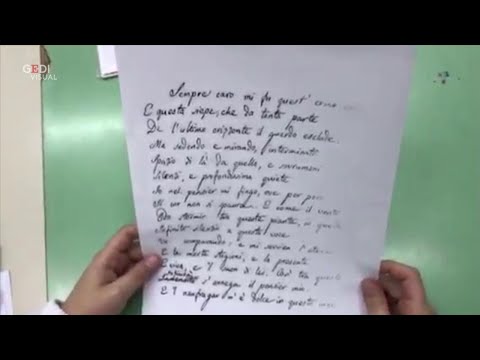 GEDI
VISUAL
Sempre caro mi fu quest' ermo
E questa siepe, che da tanta parte
De l'ultimo orizzonte il guardo esclude.
Ma sedendo e mirando, interminato
Spazio di là da quella, e sovrumani
Silenzi, e profondissima quiete
Io nel pensier mi fingo, ove per poco
Il cor non si spaura. E come il vento
Odo stormir tra queste piante, io quello
Infinito silenzio a questa voce
Vo comparando, e mi sovvien l'eterno
E le morte stagioni, e la presente
E viva, e 'l suon di lei. Così tra questa
Infinità
s'annega il pensier mio.
E 'l naufragar m'è dolce in questo